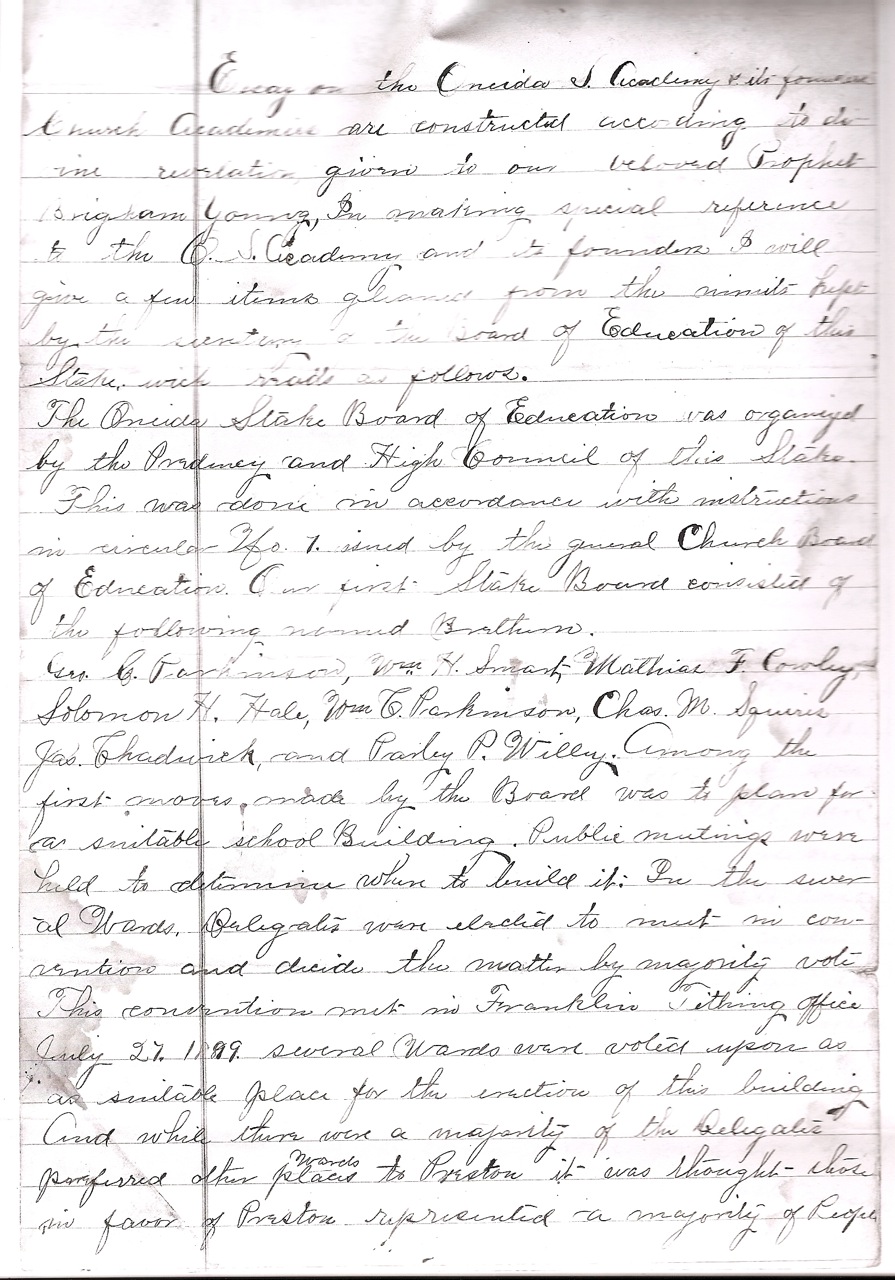 Essay on the Oneida S. Academy & its founders
Church Academies are constructed according to di-
vine revelation given to our beloved Prophet
Brigham Young, In making special reference
to the O. S. Academy and its founders I will
give a few items gleaned from the minits kept
by the secretary o the Board of Education of this
Stake. wich reads as follows.
The Oneida Stake Board of Education was organized
by the Predincy and High Council of this Stake.
This was done in accordance with instructions
in circular No. 1. issued by the general Church Board
of Education. Our first Stake Board consisted of
the following named Brethern.
Geo. C. Parkinson, Wm H. Smart, Mathias F. Cowley,
Solomon H. Hale, Wm C. Parkinson, Chas. M. Squires
Jas. Chadwick, and Parley P. Willey. Among the
first moves made by the Board was to plan for
a suitable school Building. Public meetings were
held to determine where to build it: In the sever
al Wards. Delegates were elected to meet in con-
vention and decide the matter by majority vote
This convention met in Franklin Tithing office
July 27. several Wards were voted upon as
as suitable place for the erection of this building
And while there were a majority of the Delegates
preferred other places Wards to Preston it was thought those
in favor of Preston represented a majority of People